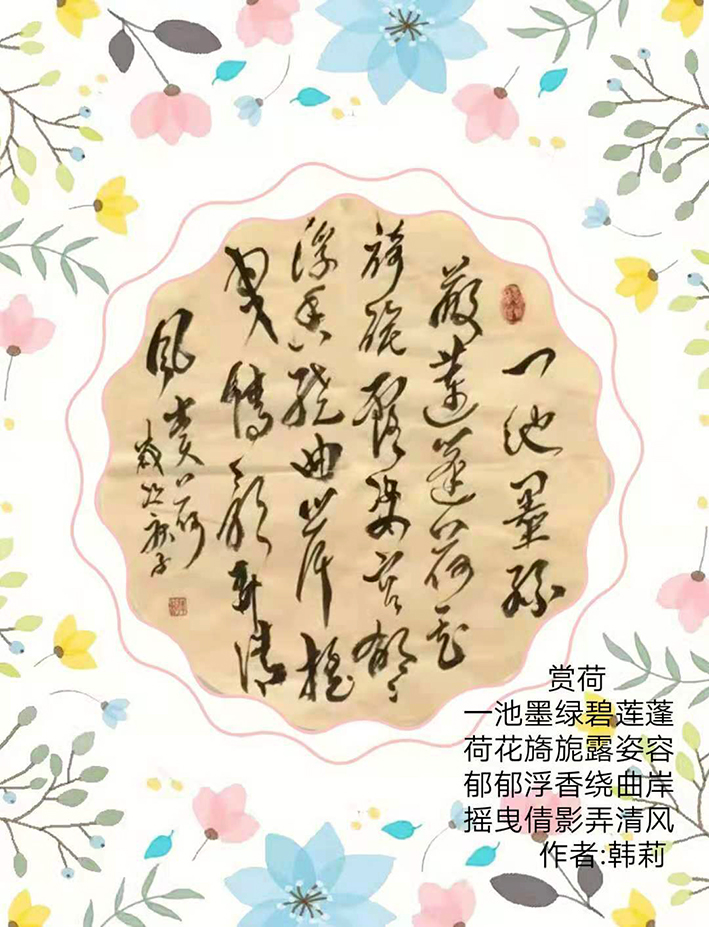 一池墨绿
蔽莲蓬荷花
旖旎露姿容郁々
浮香绕曲岸摇
曳倩影弄清
风 赏荷
岁次庚子
赏荷
一池墨绿碧莲蓬
荷花旖旎露姿容
郁郁浮香绕曲岸
摇曳倩影弄清风
作者:韩莉